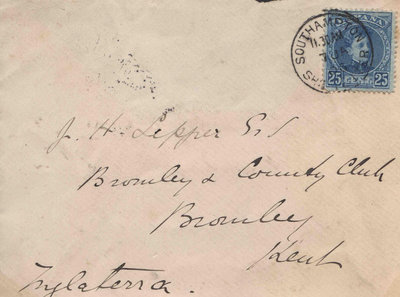 SOUTHAMPTON
11.30 AM
25 CENT. 25
J. H. Lepper Esq
Bromley & County Club
Bromley
Kent
Inglaterra.